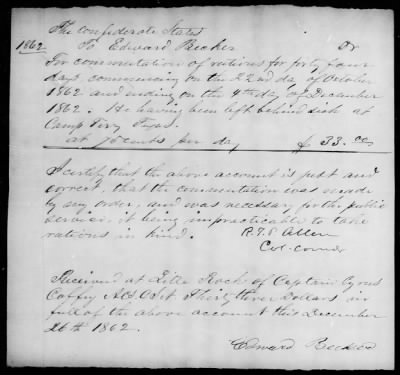 The Confederate States
1862 To Edward Becker Dr
For commutation of rations for forty four
days commencing on the 22nd day of October
1862 and ending on the 4th day of December
1862. He having been left behind sick at
Camp Terry Texas.
at 75 cents per day $ 33.00
I certify that the above account is just and
correct, that the commutation was made
by my order, and was necessary for the public
service, it being impracticable to take
rations in kind. R.T.P. Allen
Col. comdr
Received at Little Rock of Captain Cyrus
Coffey A.C.S. Thirty three Dollars in
full of the above account this December
26th 1862.
Edward Becker